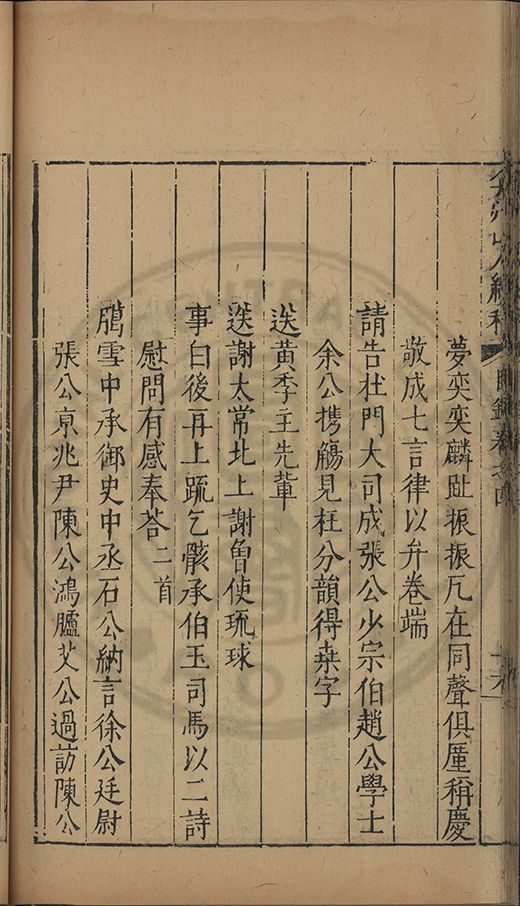 弇州山人續稿 目錄卷之四
夢奕奕麟趾振振凡在同聲俱厪稱慶
敬成七言律以弁卷端
請告杜門大司成張公少宗伯趙公學士
余公携觴見枉分韻得桒字
送黃季主先輩
送謝太常北上謝曾使琉球
事白後再上疏乞骸承伯玉司馬以二詩
慰問有感奉荅二首
臈雪中承御史中丞石公納言徐公廷尉
張公京兆尹陳公鴻臚艾公過訪陳公